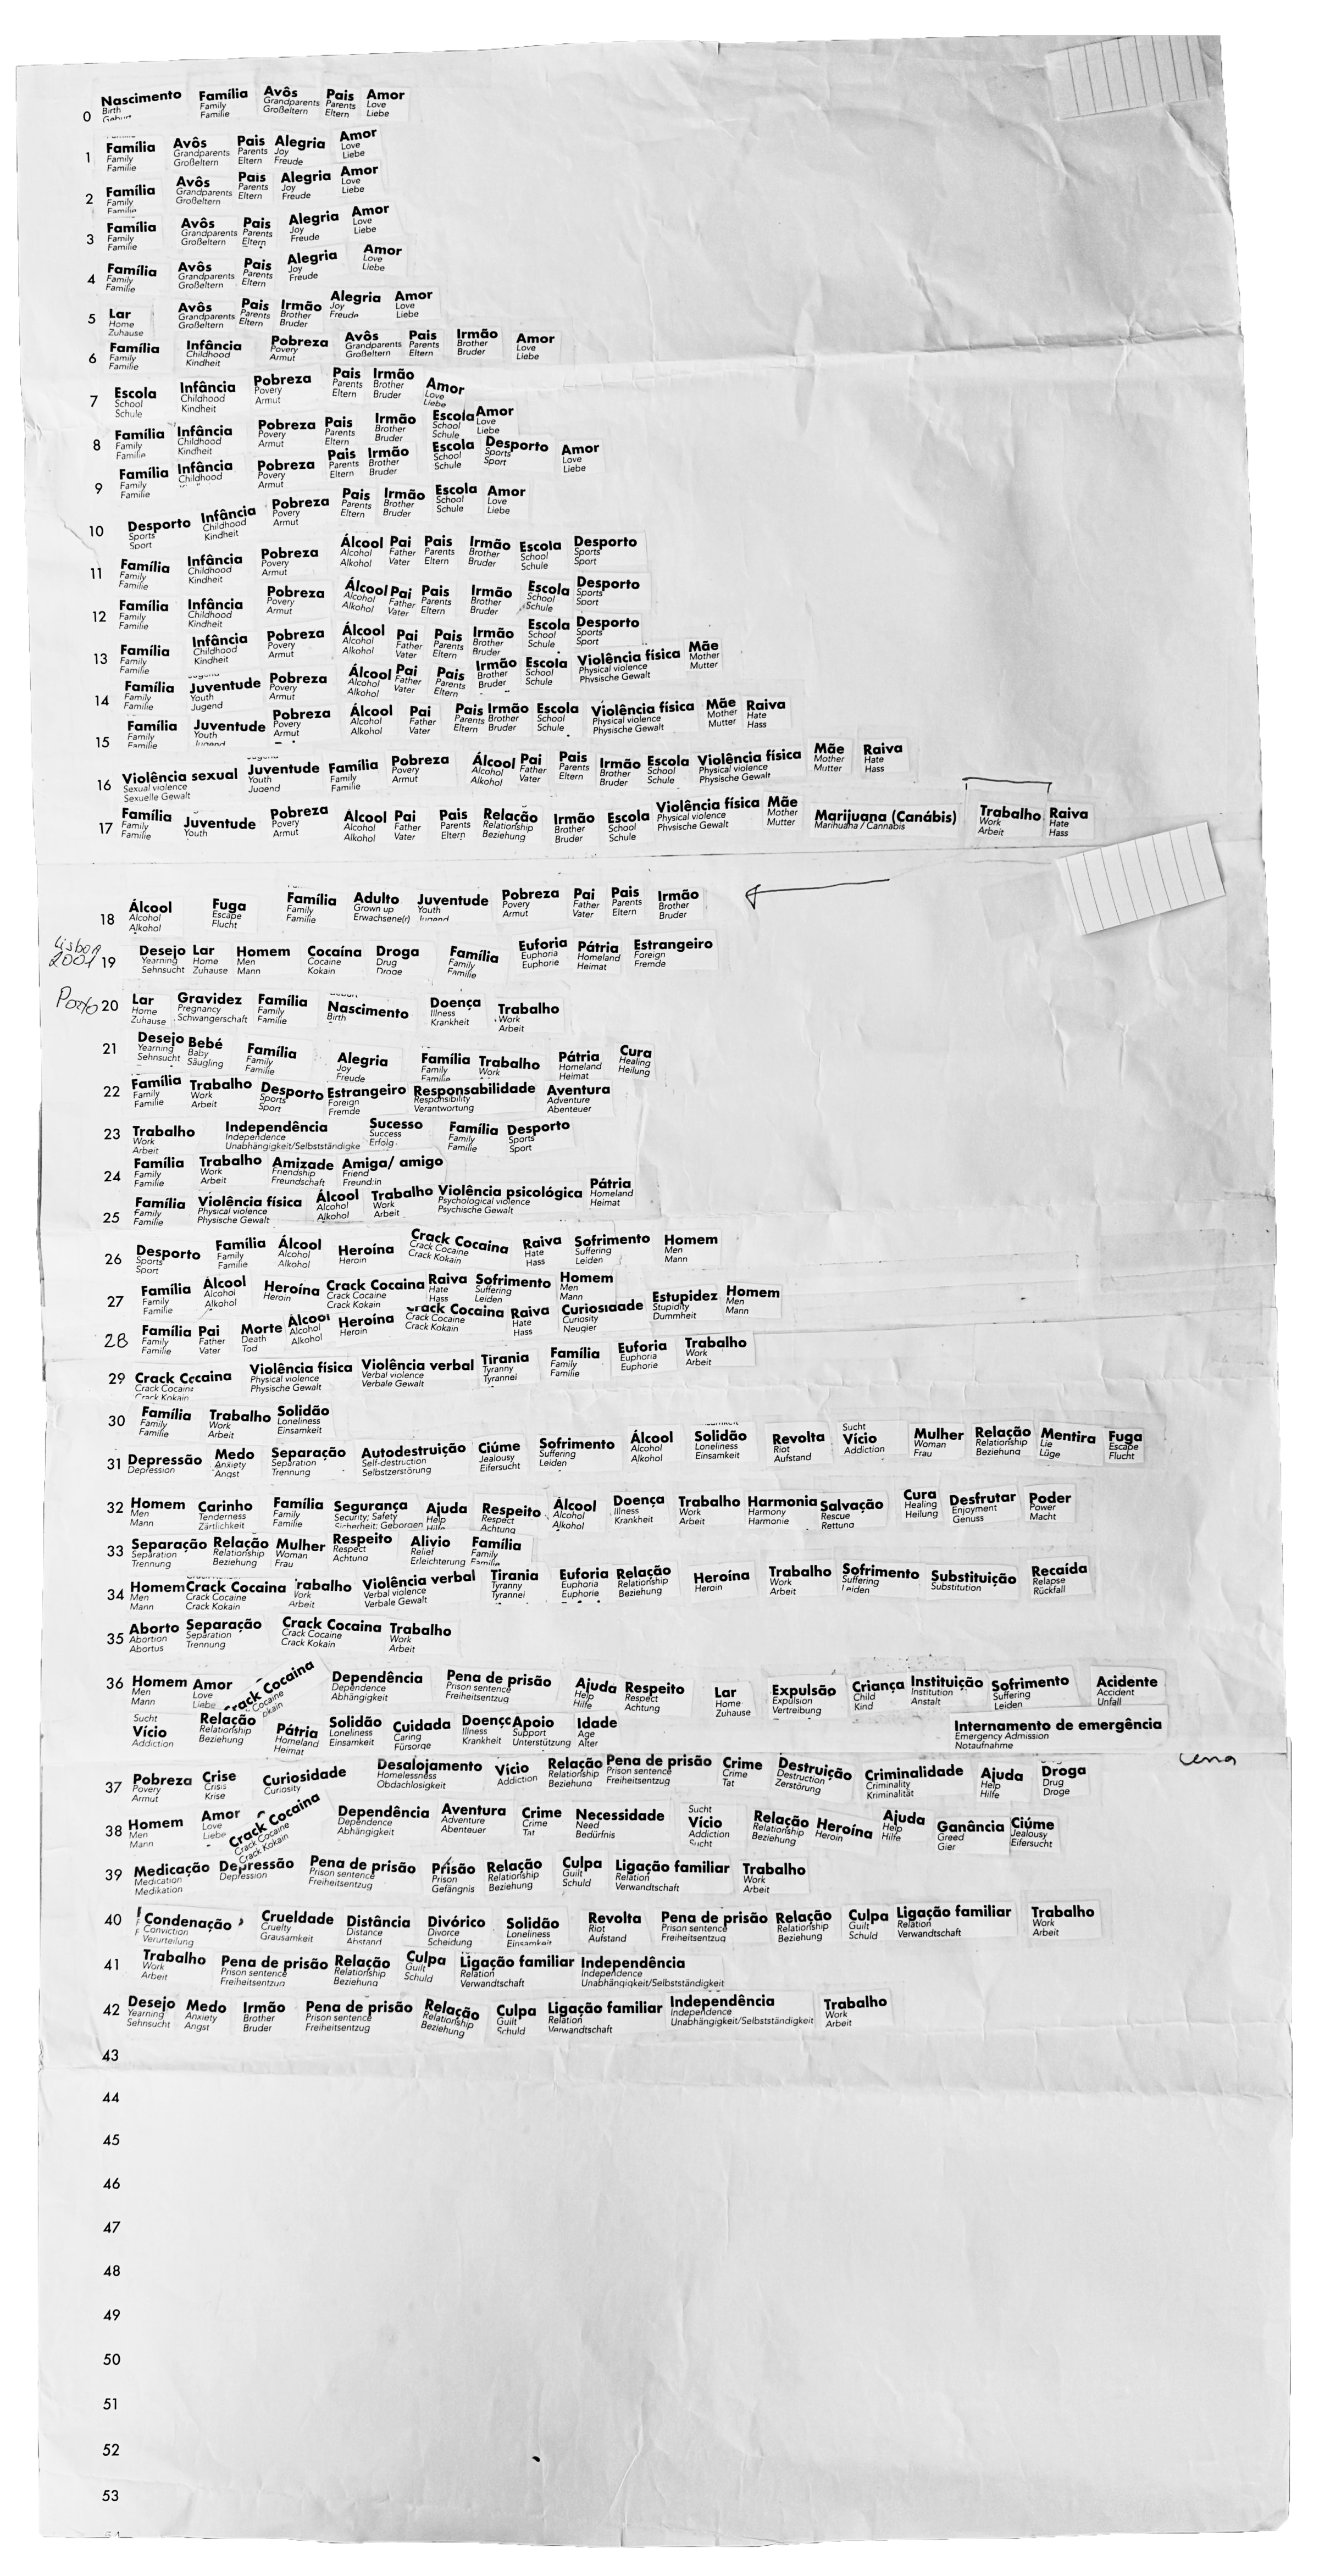 0 Nascimento Família Avôs Pais Amor
Birth Family Grandparents Parents Love
Familie Großeltern Eltern Liebe
1 Família Avôs Pais Alegria Amor
Family Grandparents Parents Joy Love
Familie Großeltern Eltern Freude Liebe
2 Família Avôs Pais Alegria Amor
Family Grandparents Parents Joy Love
Familie Großeltern Eltern Freude Liebe
3 Família Avôs Pais Alegria Amor
Family Grandparents Parents Joy Love
Familie Großeltern Eltern Freude Liebe
4 Família Avôs Pais Alegria Amor
Family Grandparents Parents Joy Love
Familie Großeltern Eltern Freude Liebe
5 Lar Avôs Pais Irmão Alegria Amor
Home Grandparents Parents Brother Joy Love
Zuhause Großeltern Eltern Bruder Freude Liebe
6 Família Infância Pobreza Avôs Pais Irmão Amor
Family Childhood Povery Grandparents Parents Brother Love
Familie Kindheit Armut Großeltern Eltern Bruder Liebe
7 Escola Infância Pobreza Pais Irmão Amor
School Childhood Povery Parents Brother Love
Schule Kindheit Armut Eltern Bruder Liebe
8 Família Infância Pobreza Pais Irmão Escola Amor
Family Childhood Povery Parents Brother School Love
Familie Kindheit Armut Eltern Bruder Schule Liebe
9 Família Infância Pobreza Pais Irmão Escola Desporto Amor
Family Childhood Povery Parents Brother School Sports Love
Familie Armut Eltern Bruder Schule Sport Liebe
10 Desporto Infância Pobreza Pais Irmão Escola Amor
Sports Childhood Povery Parents Brother School Love
Sport Kindheit Armut Eltern Bruder Schule Liebe
11 Família Infância Pobreza Álcool Pai Pais Irmão Escola Desporto
Family Childhood Povery Alcohol Father Parents Brother School Sports
Familie Kindheit Armut Alkohol Vater Eltern Bruder Schule Sport
12 Família Infância Pobreza Álcool Pai Pais Irmão Escola Desporto
Family Childhood Povery Alcohol Father Parents Brother School Sports
Familie Kindheit Armut Alkohol Vater Eltern Bruder Schule Sport
13 Família Infância Pobreza Álcool Pai Pais Irmão Escola Desporto
Family Childhood Povery Alcohol Father Parents Brother School Sports
Familie Kindheit Armut Alkohol Vater Eltern Bruder Schule Sport
14 Família Juventude Pobreza Álcool Pai Pais Irmão Escola Violência física Mãe
Family Youth Povery Alcohol Father Parents Brother School Physical violence Mother
Familie Jugend Armut Alkohol Vater Eltern Bruder Schule Physische Gewalt Mutter
15 Família Juventude Pobreza Álcool Pai Pais Irmão Escola Violência física Mãe Raiva
Family Youth Povery Alcohol Father Parents Brother School Physical violence Mother Hate
Familie Jugend Armut Alkohol Vater Eltern Bruder Schule Physische Gewalt Mutter Hass
16 Violência sexual Juventude Família Pobreza Álcool Pai Pais Irmão Escola Violência física Mãe Raiva
Sexual violence Youth Family Povery Alcohol Father Parents Brother School Physical violence Mother Hate
Sexuelle Gewalt Jugend Familie Armut Alkohol Vater Eltern Bruder Schule Physische Gewalt Mutter Hass
17 Família Juventude Pobreza Álcool Pai Pais Relação Irmão Escola Violência física Mãe Marijuana (Canábis) Trabalho Raiva
Family Youth Povery Alcohol Father Parents Relationship Brother School Physical violence Mother Marihuana / Cannabis Work Hate
Familie Armut Alkohol Vater Eltern Beziehung Bruder Schule Physische Gewalt Mutter Arbeit Hass
18 Álcool Fuga Família Adulto Juventude Pobreza Pai Pais Irmão
Alcohol Escape Family Grown up Youth Povery Father Parents Brother
Alkohol Flucht Familie Erwachsene(r) Jugend Armut Vater Eltern Bruder
Lisboa
2001 19 Desejo Lar Homem Cocaína Droga Família Euforia Pátria Estrangeiro
Yearning Home Men Cocaine Drug Family Euphoria Homeland Foreign
Sehnsucht Zuhause Mann Kokain Droge Familie Euphorie Heimat Fremde
Porto 20 Lar Gravidez Família Nascimento Doença Trabalho
Home Pregnancy Family Birth Illness Work
Zuhause Schwangerschaft Familie Krankheit Arbeit
21 Desejo Bebé Família Alegria Família Trabalho Pátria Cura
Yearning Baby Family Joy Family Work Homeland Healing
Sehnsucht Säugling Familie Freude Familie Heimat Heilung
22 Família Trabalho Desporto Estrangeiro Responsabilidade Aventura
Family Work Sports Foreign Responsibility Adventure
Familie Arbeit Sport Fremde Verantwortung Abenteuer
23 Trabalho Independência Sucesso Família Desporto
Work Independence Success Family Sports
Arbeit Unabhängigkeit/Selbstständigke Erfolg Familie Sport
24 Família Trabalho Amizade Amiga/ amigo
Family Work Friendship Friend
Familie Arbeit Freundschaft Freund:in
25 Família Violência física Álcool Trabalho Violência psicológica Pátria
Family Physical violence Alcohol Work Psychological violence Homeland
Familie Physische Gewalt Alkohol Arbeit Psychische Gewalt Heimat
26 Desporto Família Álcool Heroína Crack Cocaina Raiva Sofrimento Homem
Sports Family Alcohol Heroin Crack Cocaine Hate Suffering Men
Sport Familie Alkohol Crack Kokain Hass Leiden Mann
27 Família Álcool Heroína Crack Cocaina Raiva Sofrimento Homem Estupidez Homem
Family Alcohol Heroin Crack Cocaine Hate Suffering Men Stupidity Men
Familie Alkohol Crack Kokain Hass Leiden Mann Dummheit Mann
28 Família Pai Morte Álcool Heroína Crack Cocaina Raiva Curiosidade
Family Father Death Alcohol Heroin Crack Cocaine Hate Curiosity
Familie Vater Tod Alkohol Crack Kokain Hass Neugier
29 Crack Cocaina Violência física Violência verbal Tirania Família Euforia Trabalho
Crack Cocaine Physical violence Verbal violence Tyranny Family Euphoria Work
Crack Kokain Physische Gewalt Verbale Gewalt Tyrannei Familie Euphorie Arbeit
30 Família Trabalho Solidão
Family Work Loneliness
Familie Arbeit Einsamkeit
Sucht
31 Depressão Medo Separação Autodestruição Ciúme Sofrimento Álcool Solidão Revolta Vício Mulher Relação Mentira Fuga
Depression Anxiety Separation Self-destruction Jealousy Suffering Alcohol Loneliness Riot Addiction Woman Relationship Lie Escape
Angst Trennung Selbstzerstörung Eifersucht Leiden Alkohol Einsamkeit Aufstand Frau Beziehung Lüge Flucht
32 Homem Carinho Família Segurança Ajuda Respeito Álcool Doença Trabalho Harmonia Salvação Cura Desfrutar Poder
Men Tenderness Family Security; Safety Help Respect Alcohol Illness Work Harmony Rescue Healing Enjoyment Power
Mann Zärtlichkeit Familie Sicherheit; Geborgen Hilfe Achtung Alkohol Krankheit Arbeit Harmonie Rettung Heilung Genuss Macht
33 Separação Relação Mulher Respeito Alivio Família
Separation Relationship Woman Respect Relief Family
Trennung Beziehung Frau Achtung Erleichterung Familie
34 Homem Crack Cocaina rabalho Violência verbal Tirania Euforia Relação Heroína Trabalho Sofrimento Substituição Recaída
Men Crack Cocaine Work Verbal violence Tyranny Euphoria Relationship Heroin Work Suffering Substitution Relapse
Mann Crack Kokain Arbeit Verbale Gewalt Tyrannei Euphorie Beziehung Arbeit Leiden Rückfall
35 Aborto Separação Crack Cocaina Trabalho
Abortion Separation Crack Cocaine Work
Abortus Trennung Crack Kokain Arbeit
36 Homem Amor Crack Cocaina Dependência Pena de prisão Ajuda Respeito Lar Expulsão Criança Instituição Sofrimento Acidente
Men Love Cocaine Dependence Prison sentence Help Respect Home Expulsion Child Institution Suffering Accident
Mann Liebe Abhängigkeit Freiheitsentzug Hilfe Achtung Zuhause Vertreibung Kind Anstalt Leiden Unfall
Sucht
Vício Relação Pátria Solidão Cuidada Doença Apoio Idade Internamento de emergência
Addiction Relationship Homeland Loneliness Caring Illness Support Age Emergency Admission
Beziehung Heimat Einsamkeit Fürsorge Krankheit Unterstützung Alter Notaufnahme
37 Pobreza Crise Curiosidade Desalojamento Vício Relação Pena de prisão Crime Destruição Criminalidade Ajuda Droga
Povery Crisis Curiosity Homelessness Addiction Relationship Prison sentence Crime Destruction Criminality Help Drug
Armut Krise Obdachlosigkeit Beziehung Freiheitsentzug Tat Zerstörung Kriminalität Hilfe Droge
Sucht
38 Homem Amor Crack Cocaina Dependência Aventura Crime Necessidade Vício Relação Heroína Ajuda Ganância Ciúme
Men Love Crack Cocaine Dependence Adventure Crime Need Addiction Relationship Heroin Help Greed Jealousy
Mann Liebe Crack Kokain Abhängigkeit Abenteuer Tat Bedürfnis Sucht Beziehung Hilfe Gier Eifersucht
39 Medicação Depressão Pena de prisão Prisão Relação Culpa Ligação familiar Trabalho
Medication Depression Prison sentence Prison Relationship Guilt Relation Work
Medikation Freiheitsentzug Gefängnis Beziehung Schuld Verwandtschaft Arbeit
40 Condenação Crueldade Distância Divórico Solidão Revolta Pena de prisão Relação Culpa Ligação familiar Trabalho
Conviction Cruelty Distance Divorce Loneliness Riot Prison sentence Relationship Guilt Relation Work
Verurteilung Grausamkeit Abstand Scheidung Einsamkeit Aufstand Freiheitsentzug Beziehung Schuld Verwandtschaft Arbeit
41 Trabalho Pena de prisão Relação Culpa Ligação familiar Independência
Work Prison sentence Relationship Guilt Relation Independence
Arbeit Freiheitsentzug Beziehung Schuld Verwandtschaft Unabhängigkeit/Selbstständigkeit
42 Desejo Medo Irmão Pena de prisão Relação Culpa Ligação familiar Independência Trabalho
Yearning Anxiety Brother Prison sentence Relationship Guilt Relation Independence Work
Sehnsucht Angst Bruder Freiheitsentzug Beziehung Schuld Verwandtschaft Unabhängigkeit/Selbstständigkeit Arbeit
43
44
45
46
47
48
49
50
51
52
53